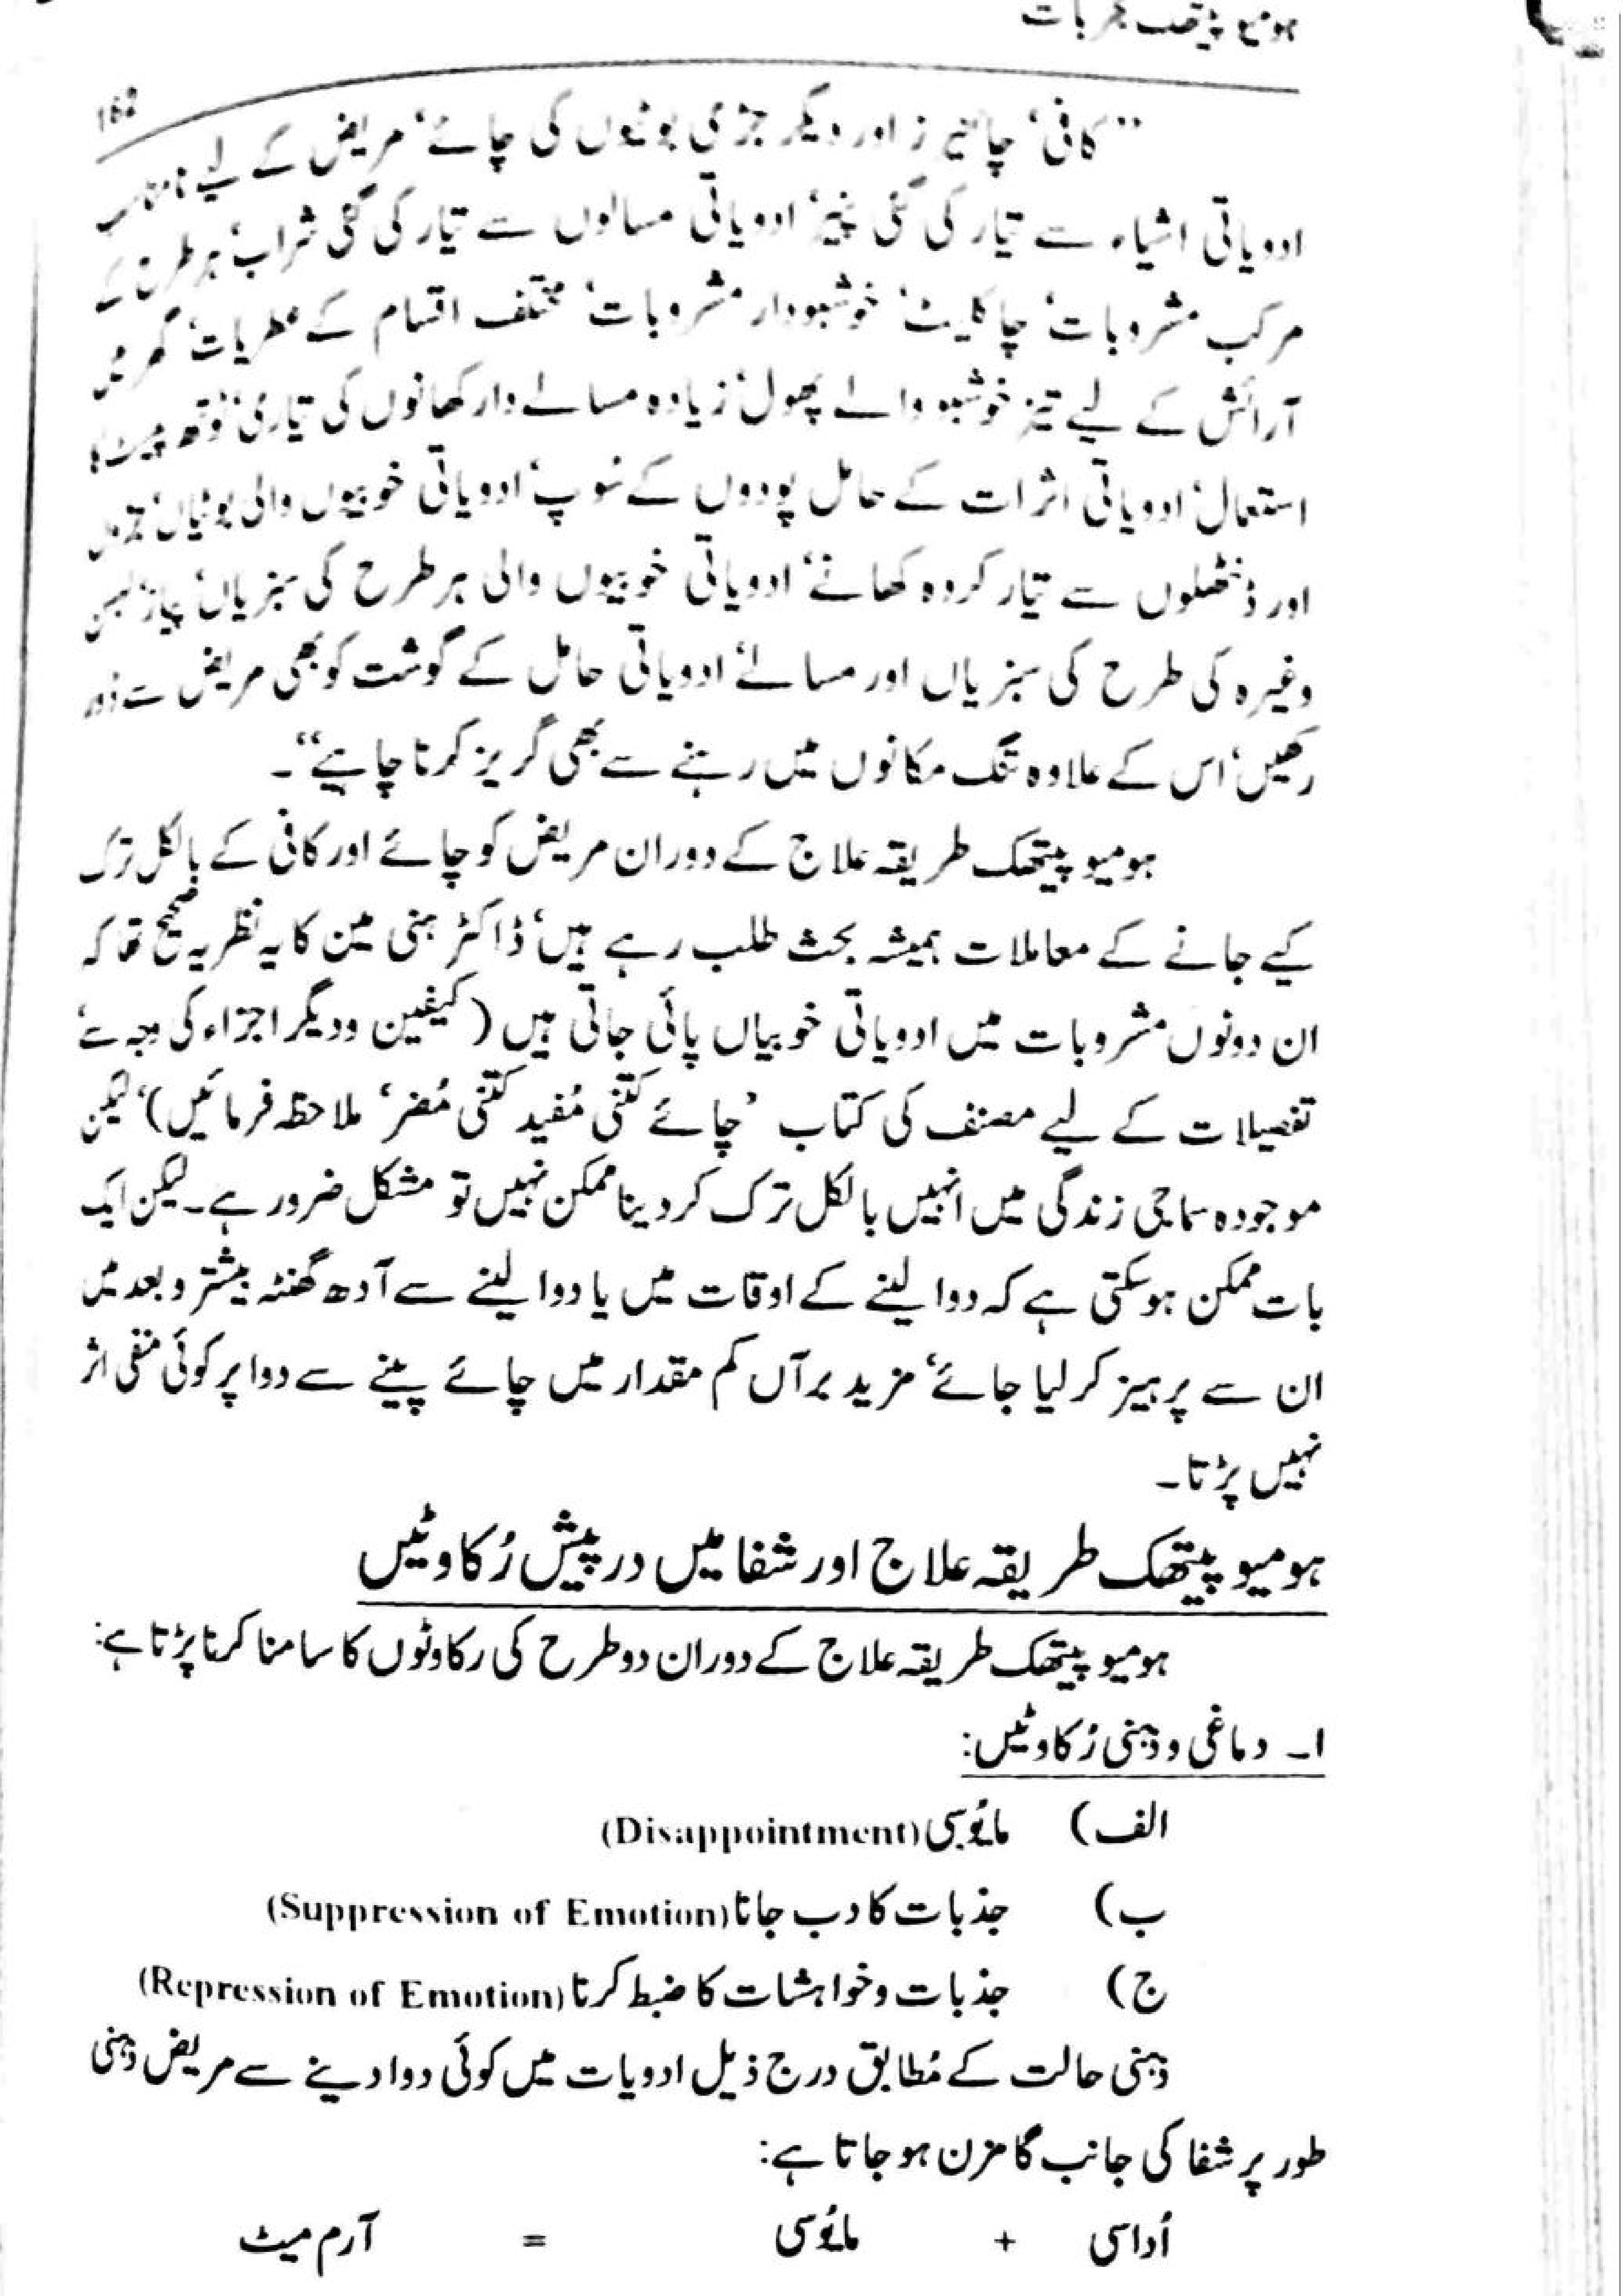 ہومیو پیتھک مجربات
162
’’کافی‘ چائنیز اور دیگر جڑی بوٹیوں کی چائے‘ مریض کے لیے
ادویاتی اشیاء سے تیار کی گئی بیئر‘ ادویاتی مسالوں سے تیار کی گئی شراب‘ ہر طرح کے
مرکب مشروبات‘ چاکلیٹ‘ خوشبودار مشروبات‘ مختلف اقسام کے عطریات‘ گھر میں
آرائش کے لیے تیز خوشبو والے پھول‘ زیادہ مسالے دار کھانوں کی تیاری‘ ٹوتھ پیسٹ کا
استعمال‘ ادویاتی اثرات کے حامل پودوں کے سُوپ‘ ادویاتی خوبیوں والی بوٹیاں‘
اور ڈنٹھلوں سے تیار کردہ کھانے‘ ادویاتی خوبیوں والی ہر طرح کی سبزیاں‘ پیاز‘ لہسن
وغیرہ کی طرح کی سبزیاں اور مسالے‘ ادویاتی حامل کے گوشت کو بھی مریض سے دُور
رکھیں‘ اس کے علاوہ تنگ مکانوں میں رہنے سے بھی گریز کرنا چاہیے‘‘۔
ہومیو پیتھک طریقہ علاج کے دوران مریض کو چائے اور کافی کے بالکل ترک
کیے جانے کے معاملات ہمیشہ بحث طلب رہے ہیں‘ ڈاکٹر ہنی مین کا یہ نظریہ صحیح تھا کہ
ان دونوں مشروبات میں ادویاتی خوبیاں پائی جاتی ہیں (کیفین ودیگر اجزاء کی وجہ سے‘
تفصیلات کے لیے مصنف کی کتاب ’چائے کتنی مُفید کتنی مُضر‘ ملاحظہ فرمائیں)‘ لیکن
موجودہ سماجی زندگی میں انہیں بالکل ترک کر دینا ممکن نہیں تو مشکل ضرور ہے۔ لیکن ایک
بات ممکن ہوسکتی ہے کہ دوا لینے کے اوقات میں یا دوا لینے سے آدھ گھنٹہ بیشتر و بعد میں
ان سے پرہیز کر لیا جائے‘ مزید برآں کم مقدار میں چائے پینے سے دوا پر کوئی منفی اثر
نہیں پڑتا۔
ہومیو پیتھک طریقہ علاج اور شفا میں درپیش رُکاوٹیں
ہومیو پیتھک طریقہ علاج کے دوران دو طرح کی رکاوٹوں کا سامنا کرنا پڑتا ہے:
۱۔ دماغی و ذہنی رُکاوٹیں:
الف) مایُوسی (Disappointment)
ب) جذبات کا دب جانا (Suppression of Emotion)
ج) جذبات و خواہشات کا ضبط کرنا (Repression of Emotion)
ذہنی حالت کے مُطابق درج ذیل ادویات میں کوئی دوا دینے سے مریض ذہنی
طور پر شفا کی جانب گامزن ہو جاتا ہے:
اُداسی + مایُوسی = آرم میٹ